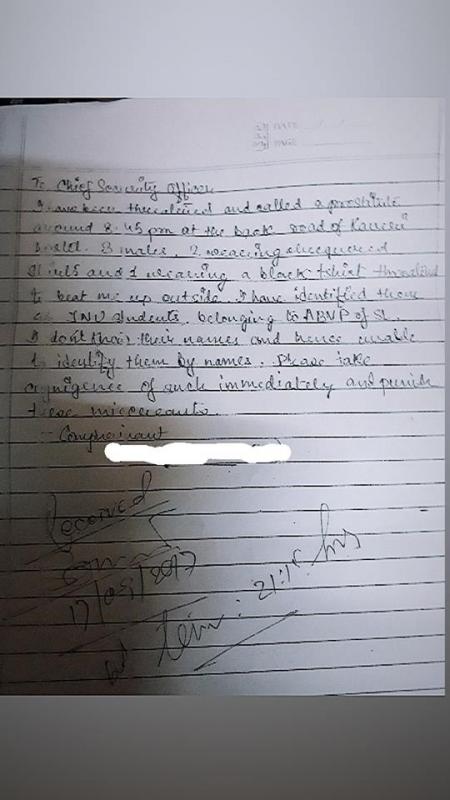 To Chief Security Officer
I have been threatened and called a prostitute
around 8.45 pm at the back road of Kaveri
hostel. 3 males, 2 wearing chequered
shirts and 1 wearing a black tshirt threatened
to beat me up outside. I have identified them
as JNU students, belonging to ABVP of SL.
I don't know their names and hence unable
to identify them by names. Please take
cognigence of such immediately and punish
these miccreants.
- Complainant
Received
17/05/2017
Time: 21:15 hrs